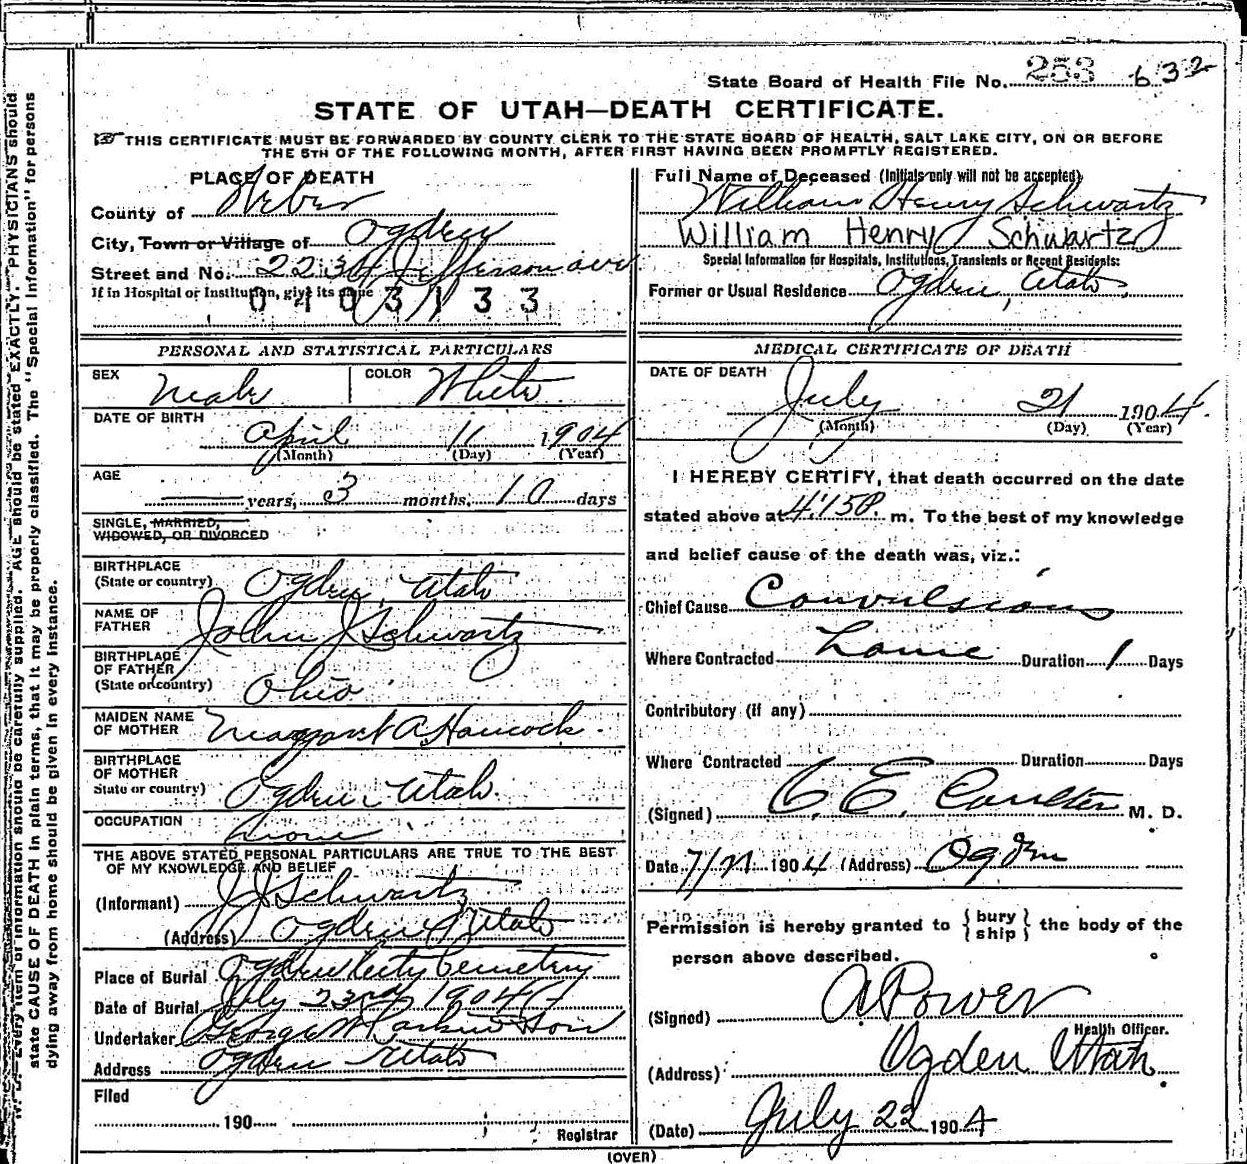 State Board of Health File No. 253 632
STATE OF UTAH—DEATH CERTIFICATE.
THIS CERTIFICATE MUST BE FORWARDED BY COUNTY CLERK TO THE STATE BOARD OF HEALTH, SALT LAKE CITY, ON OR BEFORE
THE 5TH OF THE FOLLOWING MONTH, AFTER FIRST HAVING BEEN PROMPTLY REGISTERED.
PLACE OF DEATH
County of Weber
City, Town or Village of Ogden
Street and No. 2234 Jefferson ave
If in Hospital or Institution, give its name
0403133
Full Name of Deceased (Initials only will not be accepted)
William Henry Schwartz
William Henry Schwartz
Special Information for Hospitals, Institutions, Transients or Recent Residents:
Former or Usual Residence Ogden, Utah,
PERSONAL AND STATISTICAL PARTICULARS
SEX Male COLOR White
DATE OF BIRTH
April 11 1904
(Month) (Day) (Year)
AGE
years, 3 months, 10 days
SINGLE, MARRIED,
WIDOWED, OR DIVORCED
BIRTHPLACE
(State or country) Ogden, Utah
NAME OF
FATHER John J Schwartz
BIRTHPLACE
OF FATHER
(State or country) Ohio
MAIDEN NAME
OF MOTHER Margaret A. Hancock.
BIRTHPLACE
OF MOTHER
State or country) Ogden Utah.
OCCUPATION none
THE ABOVE STATED PERSONAL PARTICULARS ARE TRUE TO THE BEST
OF MY KNOWLEDGE AND BELIEF
(Informant) J J Schwartz
(Address) Ogden Utah
Place of Burial Ogden City Cemetery
Date of Burial July 23rd 1904
Undertaker George W Larkin & Son
Address Ogden Utah
Filed
190
Registrar
MEDICAL CERTIFICATE OF DEATH
DATE OF DEATH
July 21 1904.
(Month) (Day) (Year)
I HEREBY CERTIFY, that death occurred on the date
stated above at 4:15 P. m. To the best of my knowledge
and belief cause of the death was, viz.:
Chief Cause Convulsions
Where Contracted Home Duration 1 Days
Contributory (if any)
Where Contracted Duration Days
(Signed) C. E. Coulter M. D.
Date 7/21 1904 (Address) Ogden
Permission is hereby granted to { bury
ship } the body of the
person above described.
(Signed) A Power
Health Officer.
(Address) Ogden Utah
(Date) July 22 1904
(OVER)
N. B. Every item of information should be carefully supplied. AGE should be stated EXACTLY. PHYSICIANS should
state CAUSE OF DEATH in plain terms, that it may be properly classified. The "Special Information" for persons
dying away from home should be given in every instance.